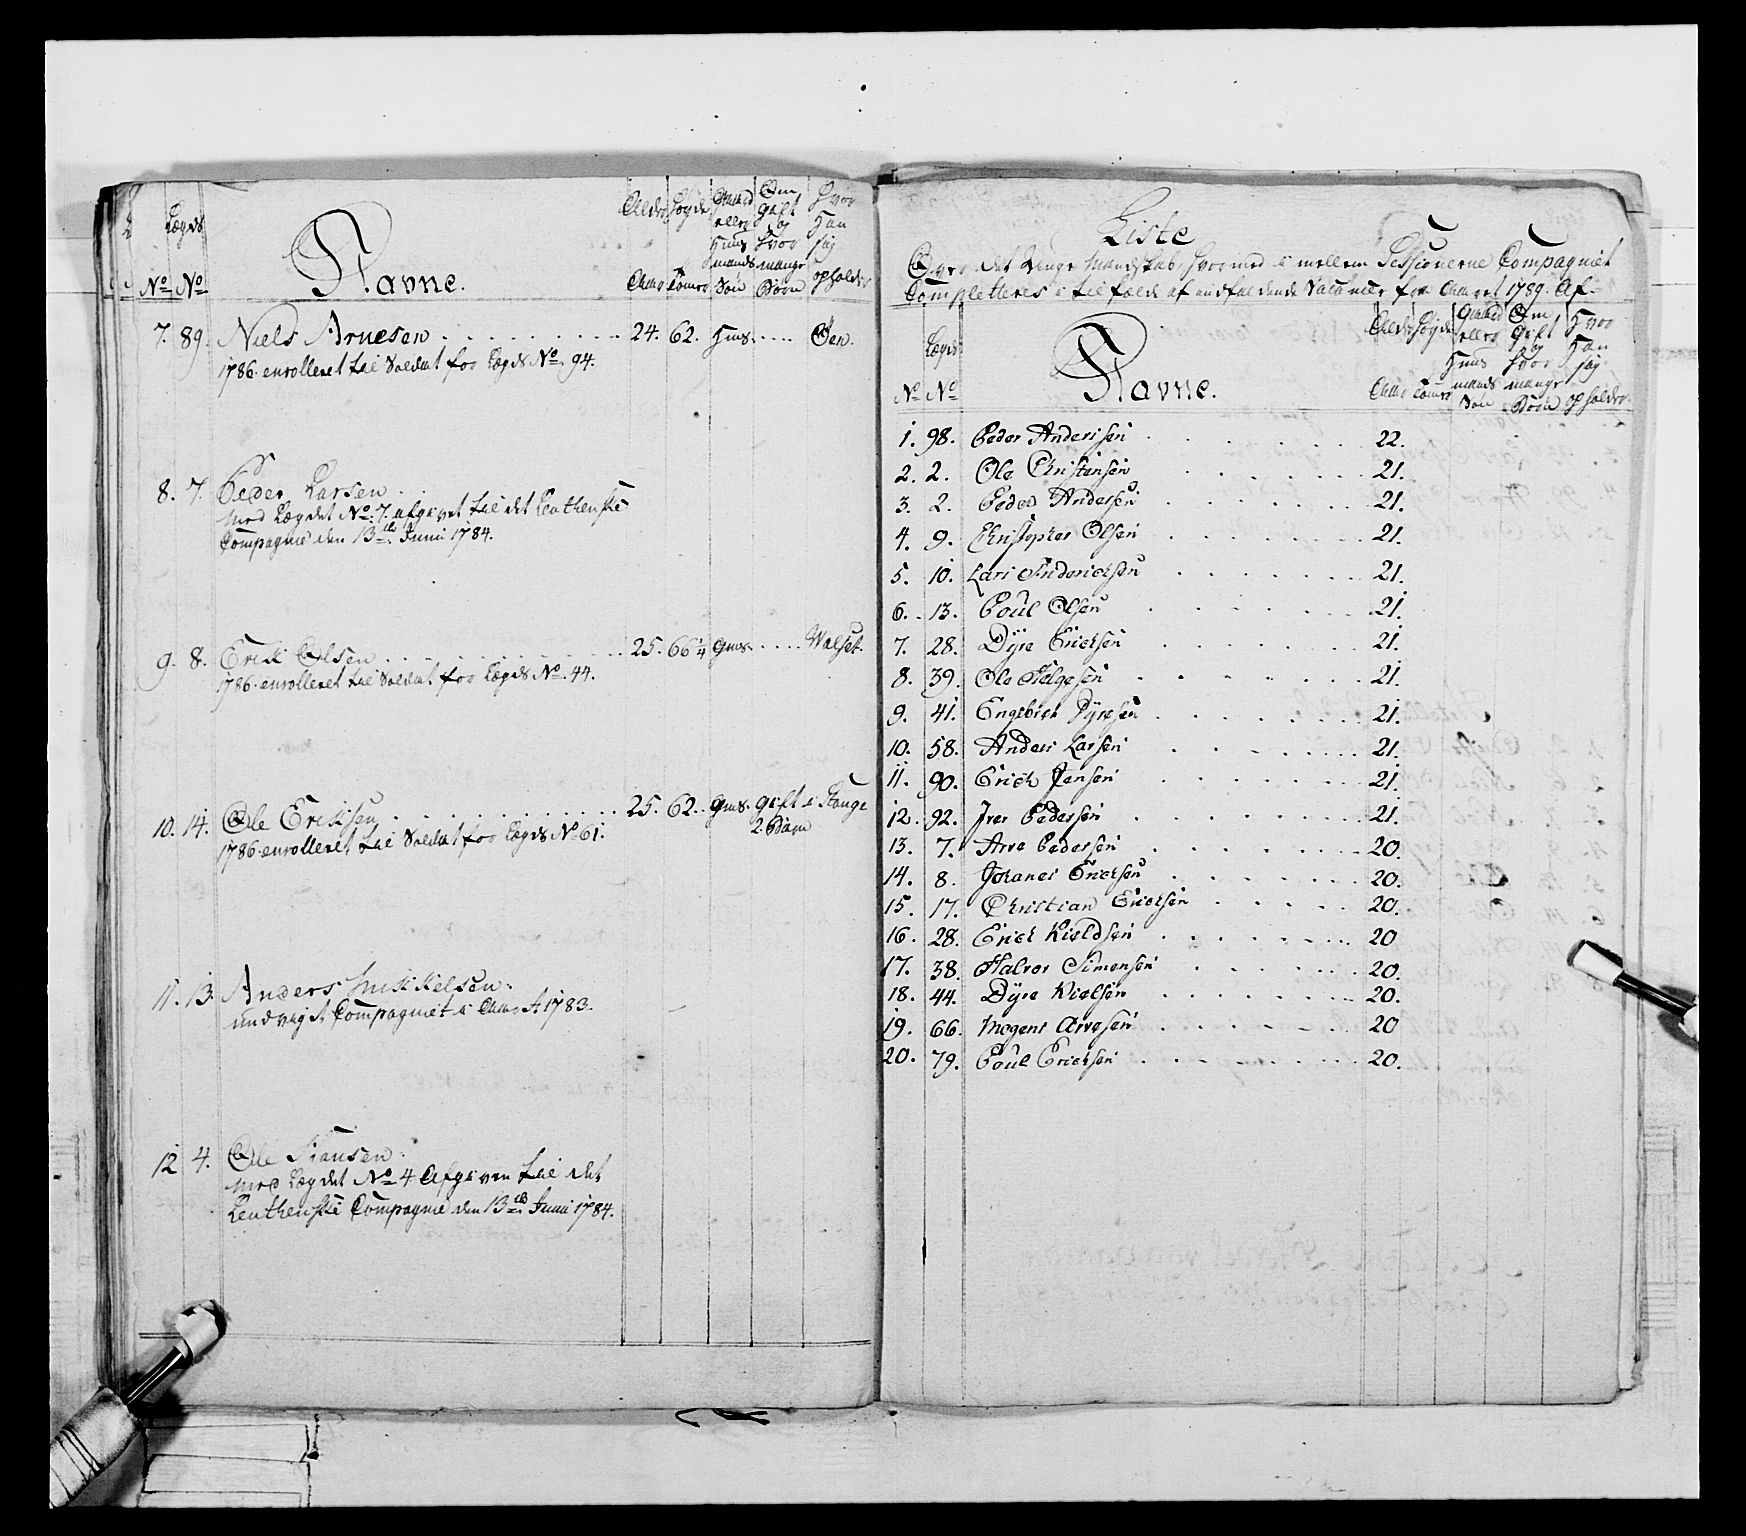 Lægds
No No
Navne.
Alder
Aar
Høyde
Tomer
Gaard
eller
Huus
mands
Søn
Om
gift
og
hvor
mange
Børn
Hvor
Han
sig
opholder
7. 89. Niels Arnesen . . . . . . . . . 24. 62. Huus. . . . . Øen.
1786. enrolleret til Soldat for Lægds No. 94.
8. 7. Peder Larsen . .
med Lægdet No. 7. afgivet til det
Compagnie den 13de Junii 1784.
9. 8. Erik Olsen . . . . . . . . . 25. 66 1/4 Gms. . . . . Walset.
1786. enrolleret til Soldat for Lægds No. 44.
10. 14. Ole Eriksen . . . . . . . . . 25. 62. Gms. gift i Stange
2. Børn
1786. enrolleret til Soldat for Lægds No 61.
11. 13. Anders Mikkelsen.
undvigt Compagniet i Aaret 1783.
12 4. Ole Hansen.
med Lægdet No 4 Afgiven til det
Compagnie den 13de Junii 1784.
Liste
Over det Unge Mandskab, hvormed i mellem Sessionerne Compagniet
Completteres i tilfælde af indfaldende Vacancer for Aaret 1789. Af-
Lægds
No No
Navne.
Alder
Aar
Høyde
Tomer
Gaard
eller
Huus
mands
Søn
Om
Gift
og
hvor
mange
Børn
Hvor
Han
sig
opholder.
1. 98. Peder Andersen . . . . . . 22.
2. 2. Ole Christensen . . . . . . 21.
3. 2. Peder Andersen . . . . . . 21.
4. 9. Christopher Olsen . . . . . . 21.
5. 10. Lars Friderichsen . . . . . . 21.
6. 13. Poul Olsen . . . . . . 21.
7. 28. Dyre Erichsen . . . . . . 21.
8. 39. Ole Helgesen . . . . . . 21.
9. 41. Engebret Dyresen . . . . . . 21.
10. 58. Anders Larsen . . . . . . 21.
11. 90. Erich Jensen . . . . . . 21.
12. 92. Iver Pedersen . . . . . . 21.
13. 7. Arve Pedersen . . . . . . 20.
14. 8. Johanes Erichsen . . . . . . 20.
15. 17. Christian Erichsen . . . . . 20.
16. 28. Erich Kieldsen . . . . . . 20
17. 38. Halvor Simensen . . . . . . 20.
18. 44. Dyre Nielsen . . . . . . 20.
19. 66. Mogens Arvesen . . . . . . 20
20. 79. Poul Erichsen . . . . . . 20.